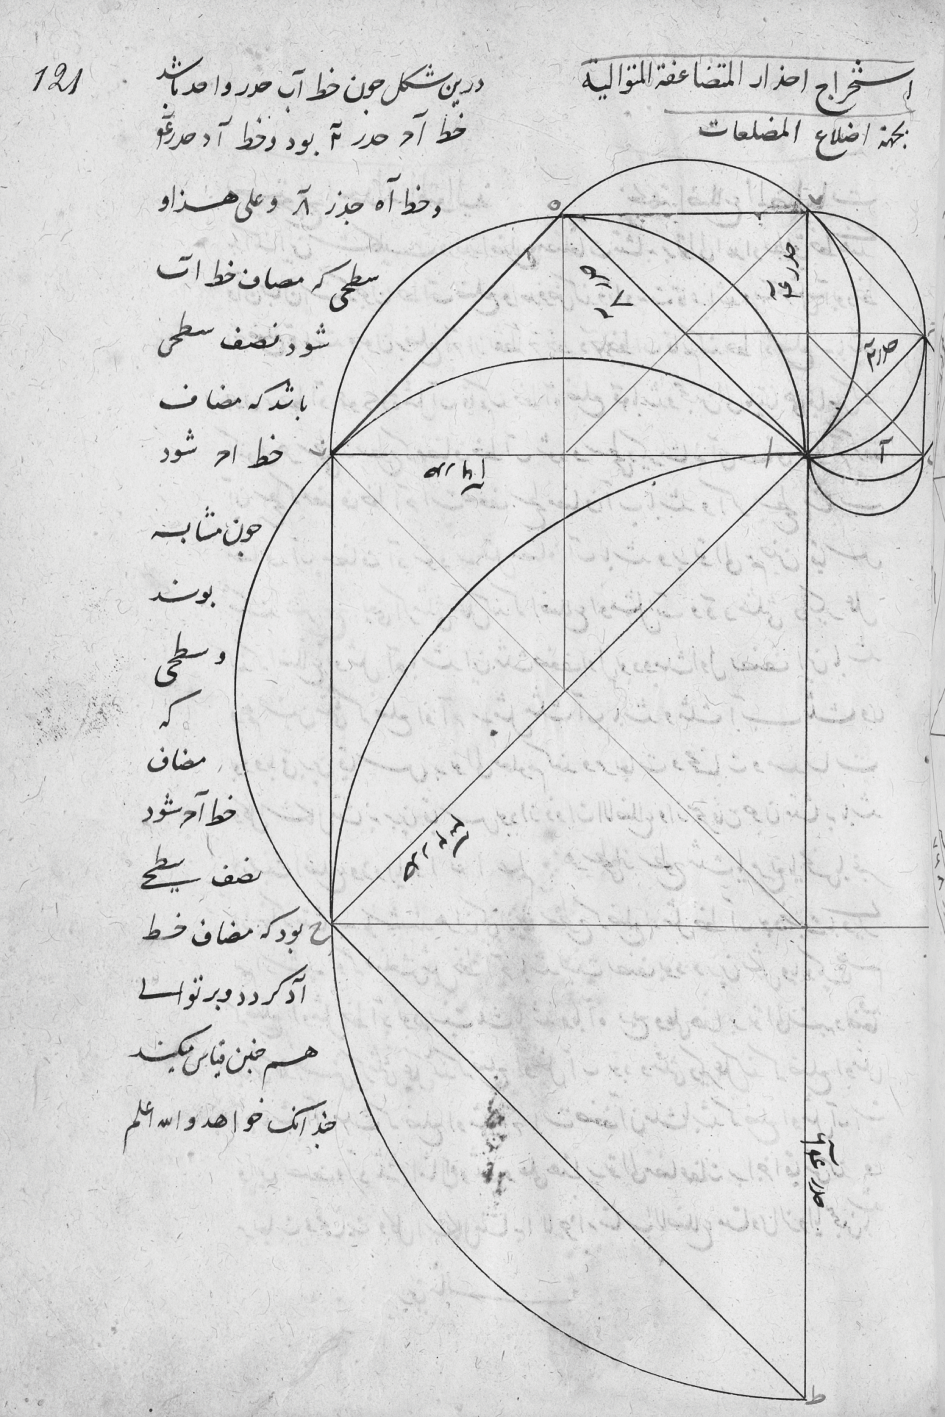 121
استخراج اجذار المتضاعفة المتوالية
بجهة اضلاع المضلعات
درین شکل چون خط آب جذر واحد باشد
خط آج جذر ۲ بود وخط آد جذر ۴
وخط آه جذر ۸ وعلی هذا و
سطحی که مضاف خط اب
شود نصف سطحی
باشد که مضاف
خط اج شود
چون مشابه
بوند
و سطحی
که
مضاف
خط آج شود
نصف سطح
بود که مضاف خط
آد کردد وبر توالی
همچنین قیاس میکند
چندانک خواهد والله اعلم
ه
جذر ۸
جذر ۴
جذر ۲
آ
ا
جذر ۱۶
جذر ۳۲
ح
جذر ۶۴
ط